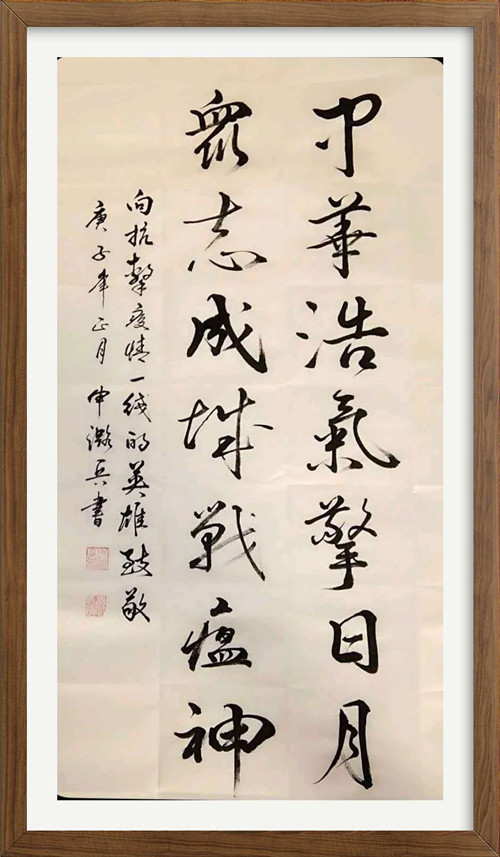 中華浩氣擎日月
眾志成城戰瘟神
向抗擊疫情一线的英雄致敬
庚子年正月申潞兵書